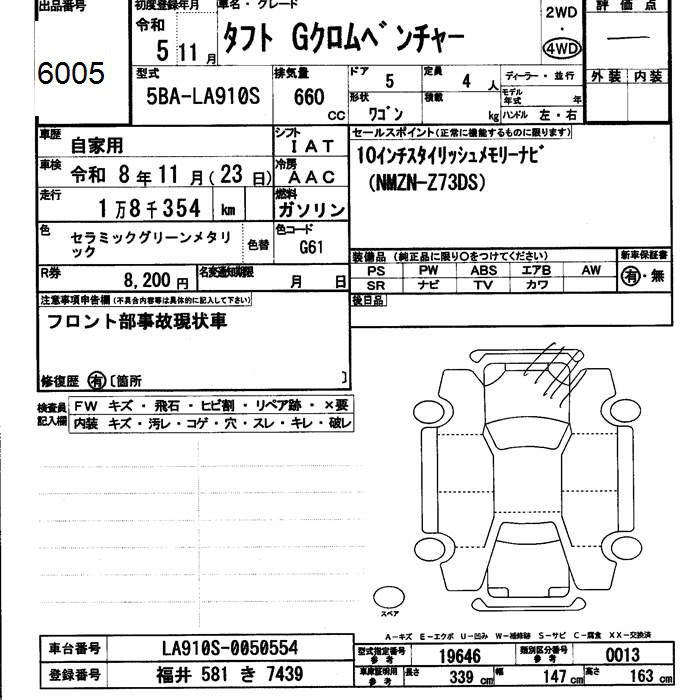 出品番号
6005
初度登録年月
令和
5 11 月
車名・グレード
タフト Gクロムベンチャー
2WD
・
4WD
評価点
―
外装 内装
型式
5BA-LA910S
排気量
660
CC
ドア
5
定員
4 人
ディーラー・並行
モデル
年式 年
形状
ワゴン
積載
kg
ハンドル 左・右
車歴
自家用
シフト
IAT
車検
令和 8 年 11 月 ( 23 日)
冷房
AAC
走行
1 万 8 千 354 km
燃料
ガソリン
色
セラミックグリーンメタリ
ック
色替
色コード
G61
R券
8,200 円
名変通知期限
月 日
セールスポイント(正常に機能するものに限ります)
10インチスタイリッシュメモリーナビ
(NMZN-Z73DS)
装備品 (純正品に限り○をつけてください)
PS PW ABS エアB AW
SR ナビ TV カワ
新車保証書
有・無
後日品
注意事項申告欄(不具合内容等は具体的に記入して下さい)
フロント部事故現状車
修復歴 有〔箇所 〕
検査員
記入欄
FW キズ・飛石・ヒビ割・リペア跡・×要
内装 キズ・汚レ・コゲ・穴・スレ・キレ・破レ
スペア
A-キズ E-エクボ U-凹み W-補修跡 S-サビ C-腐食 XX-交換済
車台番号
LA910S-0050554
登録番号
福井 581 き 7439
型式指定番号
参考
19646
類別区分番号
参考
0013
車庫証明用
参考
長さ 339 cm 幅 147 cm 高さ 163 cm